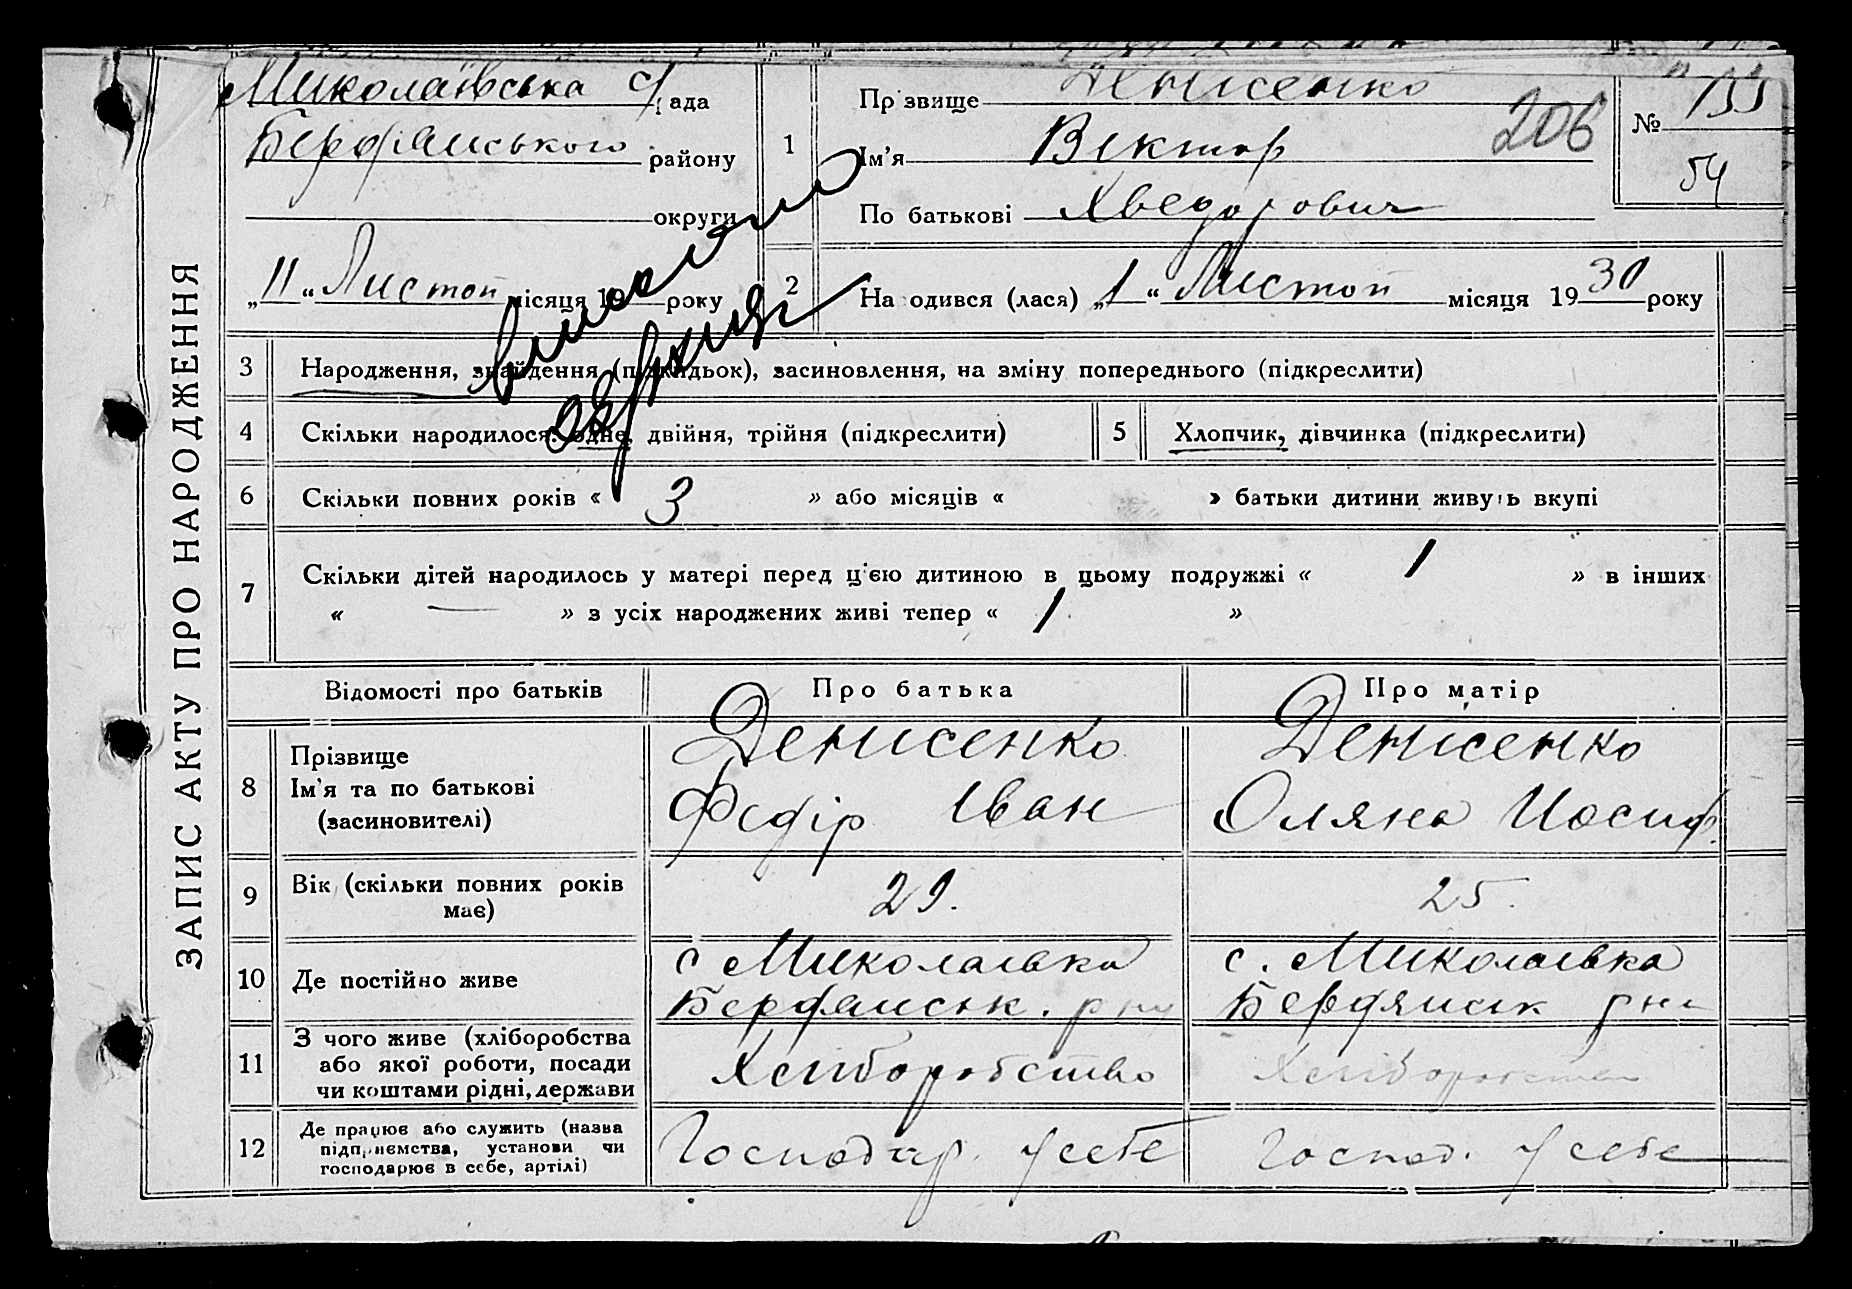 ЗАПИС АКТУ ПРО НАРОДЖЕННЯ
Миколаївська с/рада
Бердянського району
округи
„11“ Листоп місяця 19 року
1
Прізвище Денисенко
Ім’я Віктор
По батькові Хведорович
206
№ 155
54
2
Народився (лася) „1“ Листоп місяця 1930 року
вислано
3 Народження, знайдення (підкидьок), засиновлення, на зміну попереднього (підкреслити)
4 Скільки народилося: одне, двійня, трійня (підкреслити) 5 Хлопчик, дівчинка (підкреслити)
6 Скільки повних років « 3 » або місяців « » батьки дитини живуть вкупі
7 Скільки дітей народилось у матері перед цією дитиною в цьому подружжі « 1 » в інших
« — » з усіх народжених живі тепер « 1 »
Відомості про батьків Про батька Про матір
8 Прізвище
Ім’я та по батькові
(засиновителі)
Денисенко
Федір Іван
Денисенко
Оляна Иосиф.
9 Вік (скільки повних років
має)
29.
25.
10 Де постійно живе
с Миколаівка
Бердянськ. рну
с. Миколаівка
Бердянськ рну
11 З чого живе (хліборобства
або якої роботи, посади
чи коштами рідні, держави
Хліборобство
Хліборобство
12 Де працює або служить (назва
підприємства, установи чи
господарює в себе, артілі)
Господар. у себе
Господ. у себе